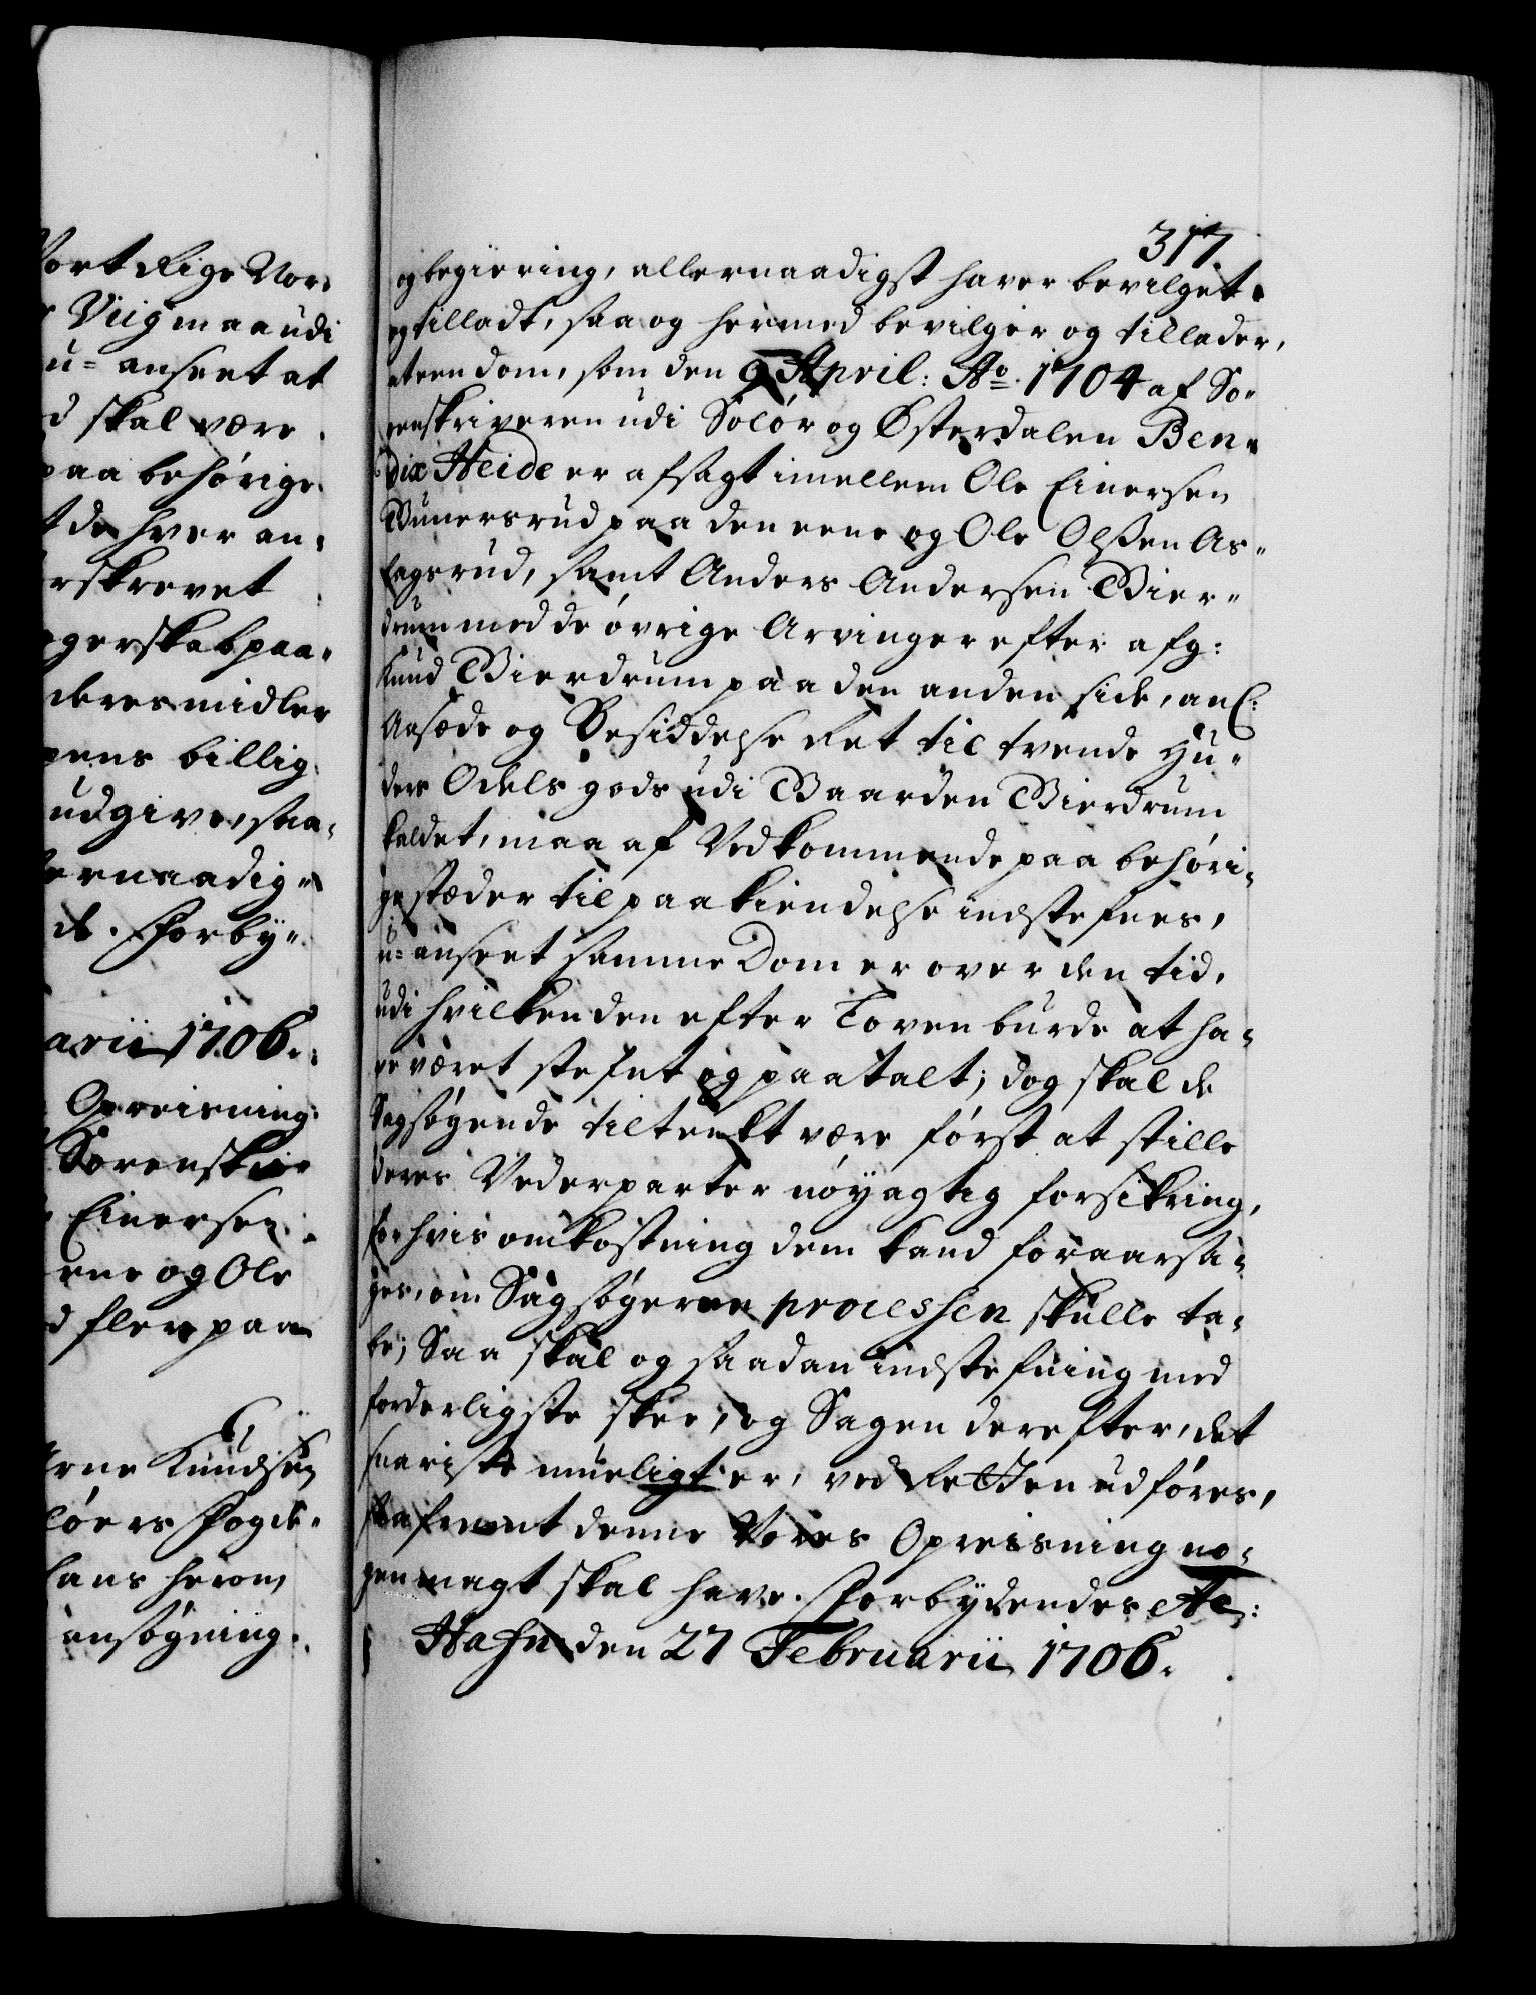 ort Rige Nor-
Viig maa udi
u- anseet at
d skal være
paa behörige
t de hver an-
rskrevet
gerskab paa-
deres midler
pens billig
udgive, saa-
ernaadig-
de. Forby-
arii 1706.
Opreisning:
Sorenskri-
Einersen
ene og Ole
d flere paa
Arne Knudsen
löers Fogde-
hans herom
ansögning
317
og begiering, allernaadigst haver bevilget
og tilladt, saa og hermed bevilger og tillader,
at een dom, som den 9 April: Ao. 1704 af So-
renskriveren udi Solör og Österdalen Ben-
dix Heide er afsagt imellem Ole Einersen
Gunersrud paa den eene og Ole Olssen As-
lagsrud, samt Anders Andersen Bier-
drum med de övrige Arvinger efter afg:
Knud Bierdrum paa den anden side, anl:
Aasæde og Besiddelse Ret til tvende Hu-
ders Odels gods udi Gaarden Bierdrum
kaldet, maa af Vedkommende paa behöri-
ge stæder til paakiendelse indstefnes,
u-anseet samme Dom er over den tid,
udi hvilken den efter Loven burde at ha-
ve været stefnt og paatalt; dog skal de
Sagsögende tiltenkt være först at stille
deres Vederparter nöyagtig forsikring,
for hvis omkostning dem kand foraarsa-
ges, om Sagsögerne processen skulle ta-
be; Saa skal og saadan indstefning med
forderligste skee, og Sagen derefter, det
snariste mueligt er, ved Retten udföres,
saafremt denne Vores Opreisning no-
gen magt skal have. Forbydendes etc:
Hafn den 27 Februarii 1706.